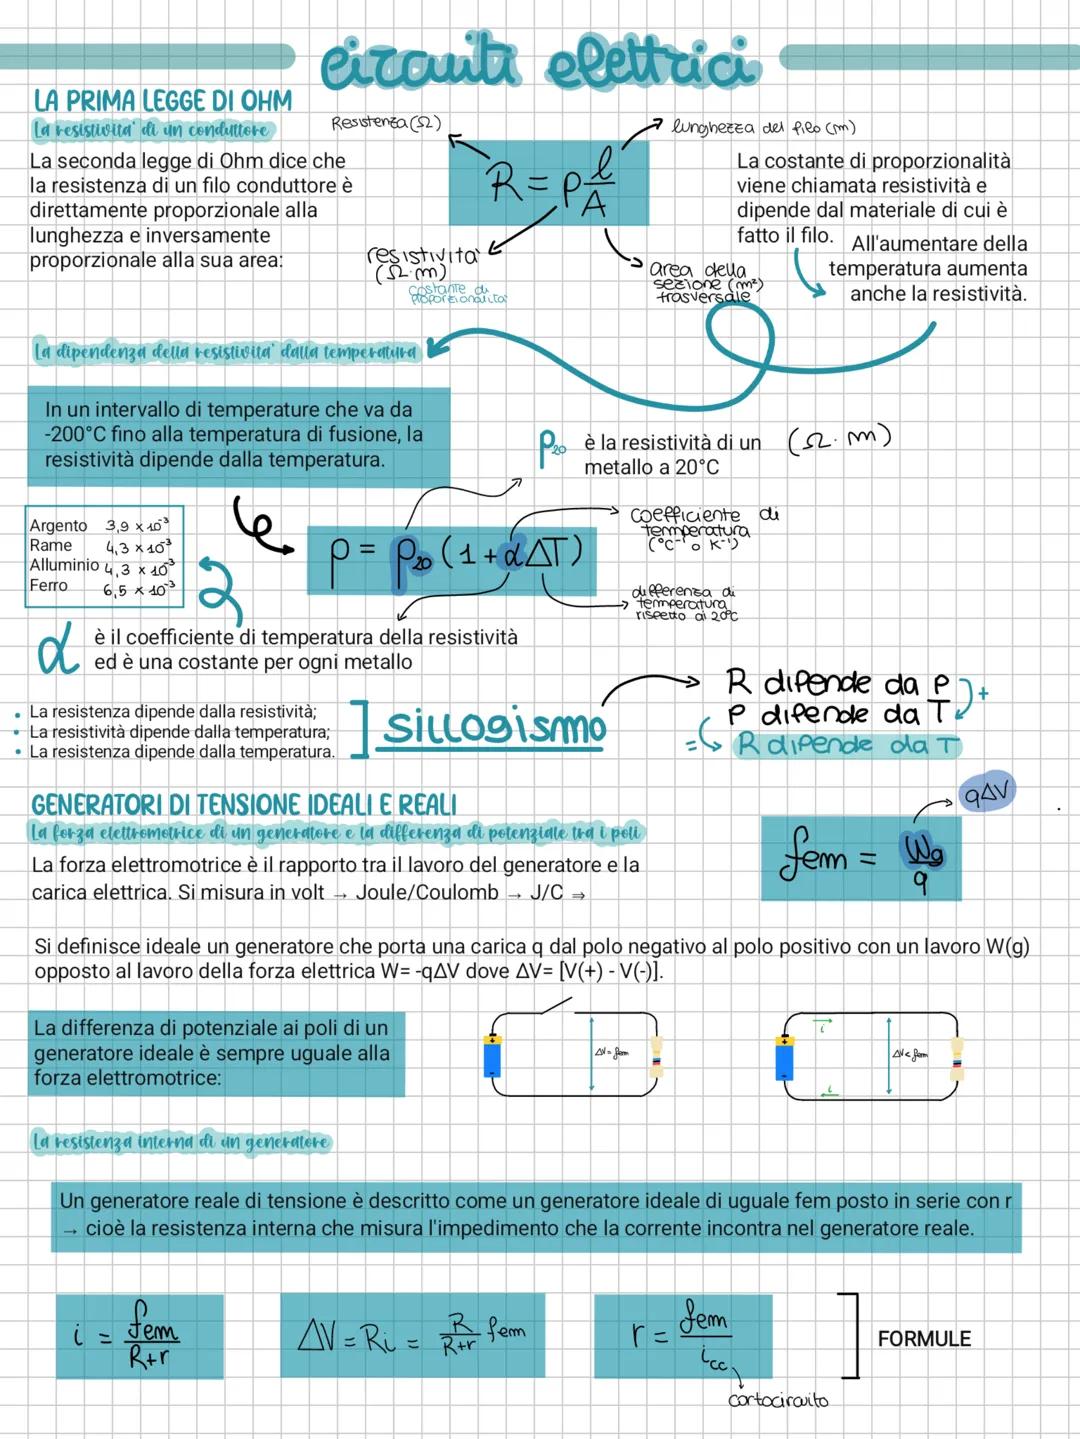 circuiti elettrici
LA PRIMA LEGGE DI OHM
La resistivita' di un conduttore
La seconda legge di Ohm dice che
la resistenza di un filo conduttore è
direttamente proporzionale alla
lunghezza e inversamente
proporzionale alla sua area:
Resistenza (Ω)
lunghezza del filo (m)
R = ρ l/A
resistività
(Ω·m)
costante di
proporzionalità
area della
sezione (m²)
trasversale
La costante di proporzionalità
viene chiamata resistività e
dipende dal materiale di cui è
fatto il filo.
All'aumentare della
temperatura aumenta
anche la resistività.
La dipendenza della resistivita' dalla temperatura
In un intervallo di temperature che va da
-200°C fino alla temperatura di fusione, la
resistività dipende dalla temperatura.
ρ20 è la resistività di un (Ω·m)
metallo a 20°C
Argento 3,9 × 10⁻³
Rame 4,3 × 10⁻³
Alluminio 4,3 × 10⁻³
Ferro 6,5 × 10⁻³
ρ = ρ20 (1 + α ΔT)
coefficiente di
temperatura
(°C⁻¹ o K⁻¹)
differenza di
temperatura
rispetto ai 20°C
α è il coefficiente di temperatura della resistività
ed è una costante per ogni metallo
• La resistenza dipende dalla resistività;
• La resistività dipende dalla temperatura;
• La resistenza dipende dalla temperatura.
] sillogismo
R dipende da ρ
ρ dipende da T +
= R dipende da T
GENERATORI DI TENSIONE IDEALI E REALI
La forza elettromotrice di un generatore e la differenza di potenziale tra i poli
La forza elettromotrice è il rapporto tra il lavoro del generatore e la
carica elettrica. Si misura in volt → Joule/Coulomb → J/C ⇒
qΔV
fem = Wg/q
Si definisce ideale un generatore che porta una carica q dal polo negativo al polo positivo con un lavoro W(g)
opposto al lavoro della forza elettrica W= -qΔV dove ΔV= [V(+) - V(-)].
La differenza di potenziale ai poli di un
generatore ideale è sempre uguale alla
forza elettromotrice:
+
-
ΔV = fem
+
-
i
i
ΔV < fem
La resistenza interna di un generatore
Un generatore reale di tensione è descritto come un generatore ideale di uguale fem posto in serie con r
→ cioè la resistenza interna che misura l'impedimento che la corrente incontra nel generatore reale.
i = fem/R+r
ΔV = Ri = R/R+r fem
r = fem/icc
FORMULE
cortocircuito